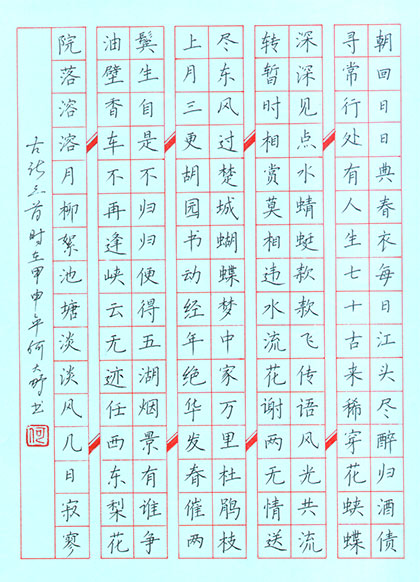 朝回日日典春衣每日江头尽醉归酒债
寻常行处有人生七十古来稀穿花蛱蝶
深深见点水蜻蜓款款飞传语风光共流
转暂时相赏莫相违水流花谢两无情送
尽东风过楚城蝴蝶梦中家万里杜鹃枝
上月三更胡园书动经年绝华发春催两
鬓生自是不归归便得五湖烟景有谁争
油壁香车不再逢峡云无迹任西东梨花
院落溶溶月柳絮池塘淡淡风几日寂寥
古诗三首时在甲申年何大书
何